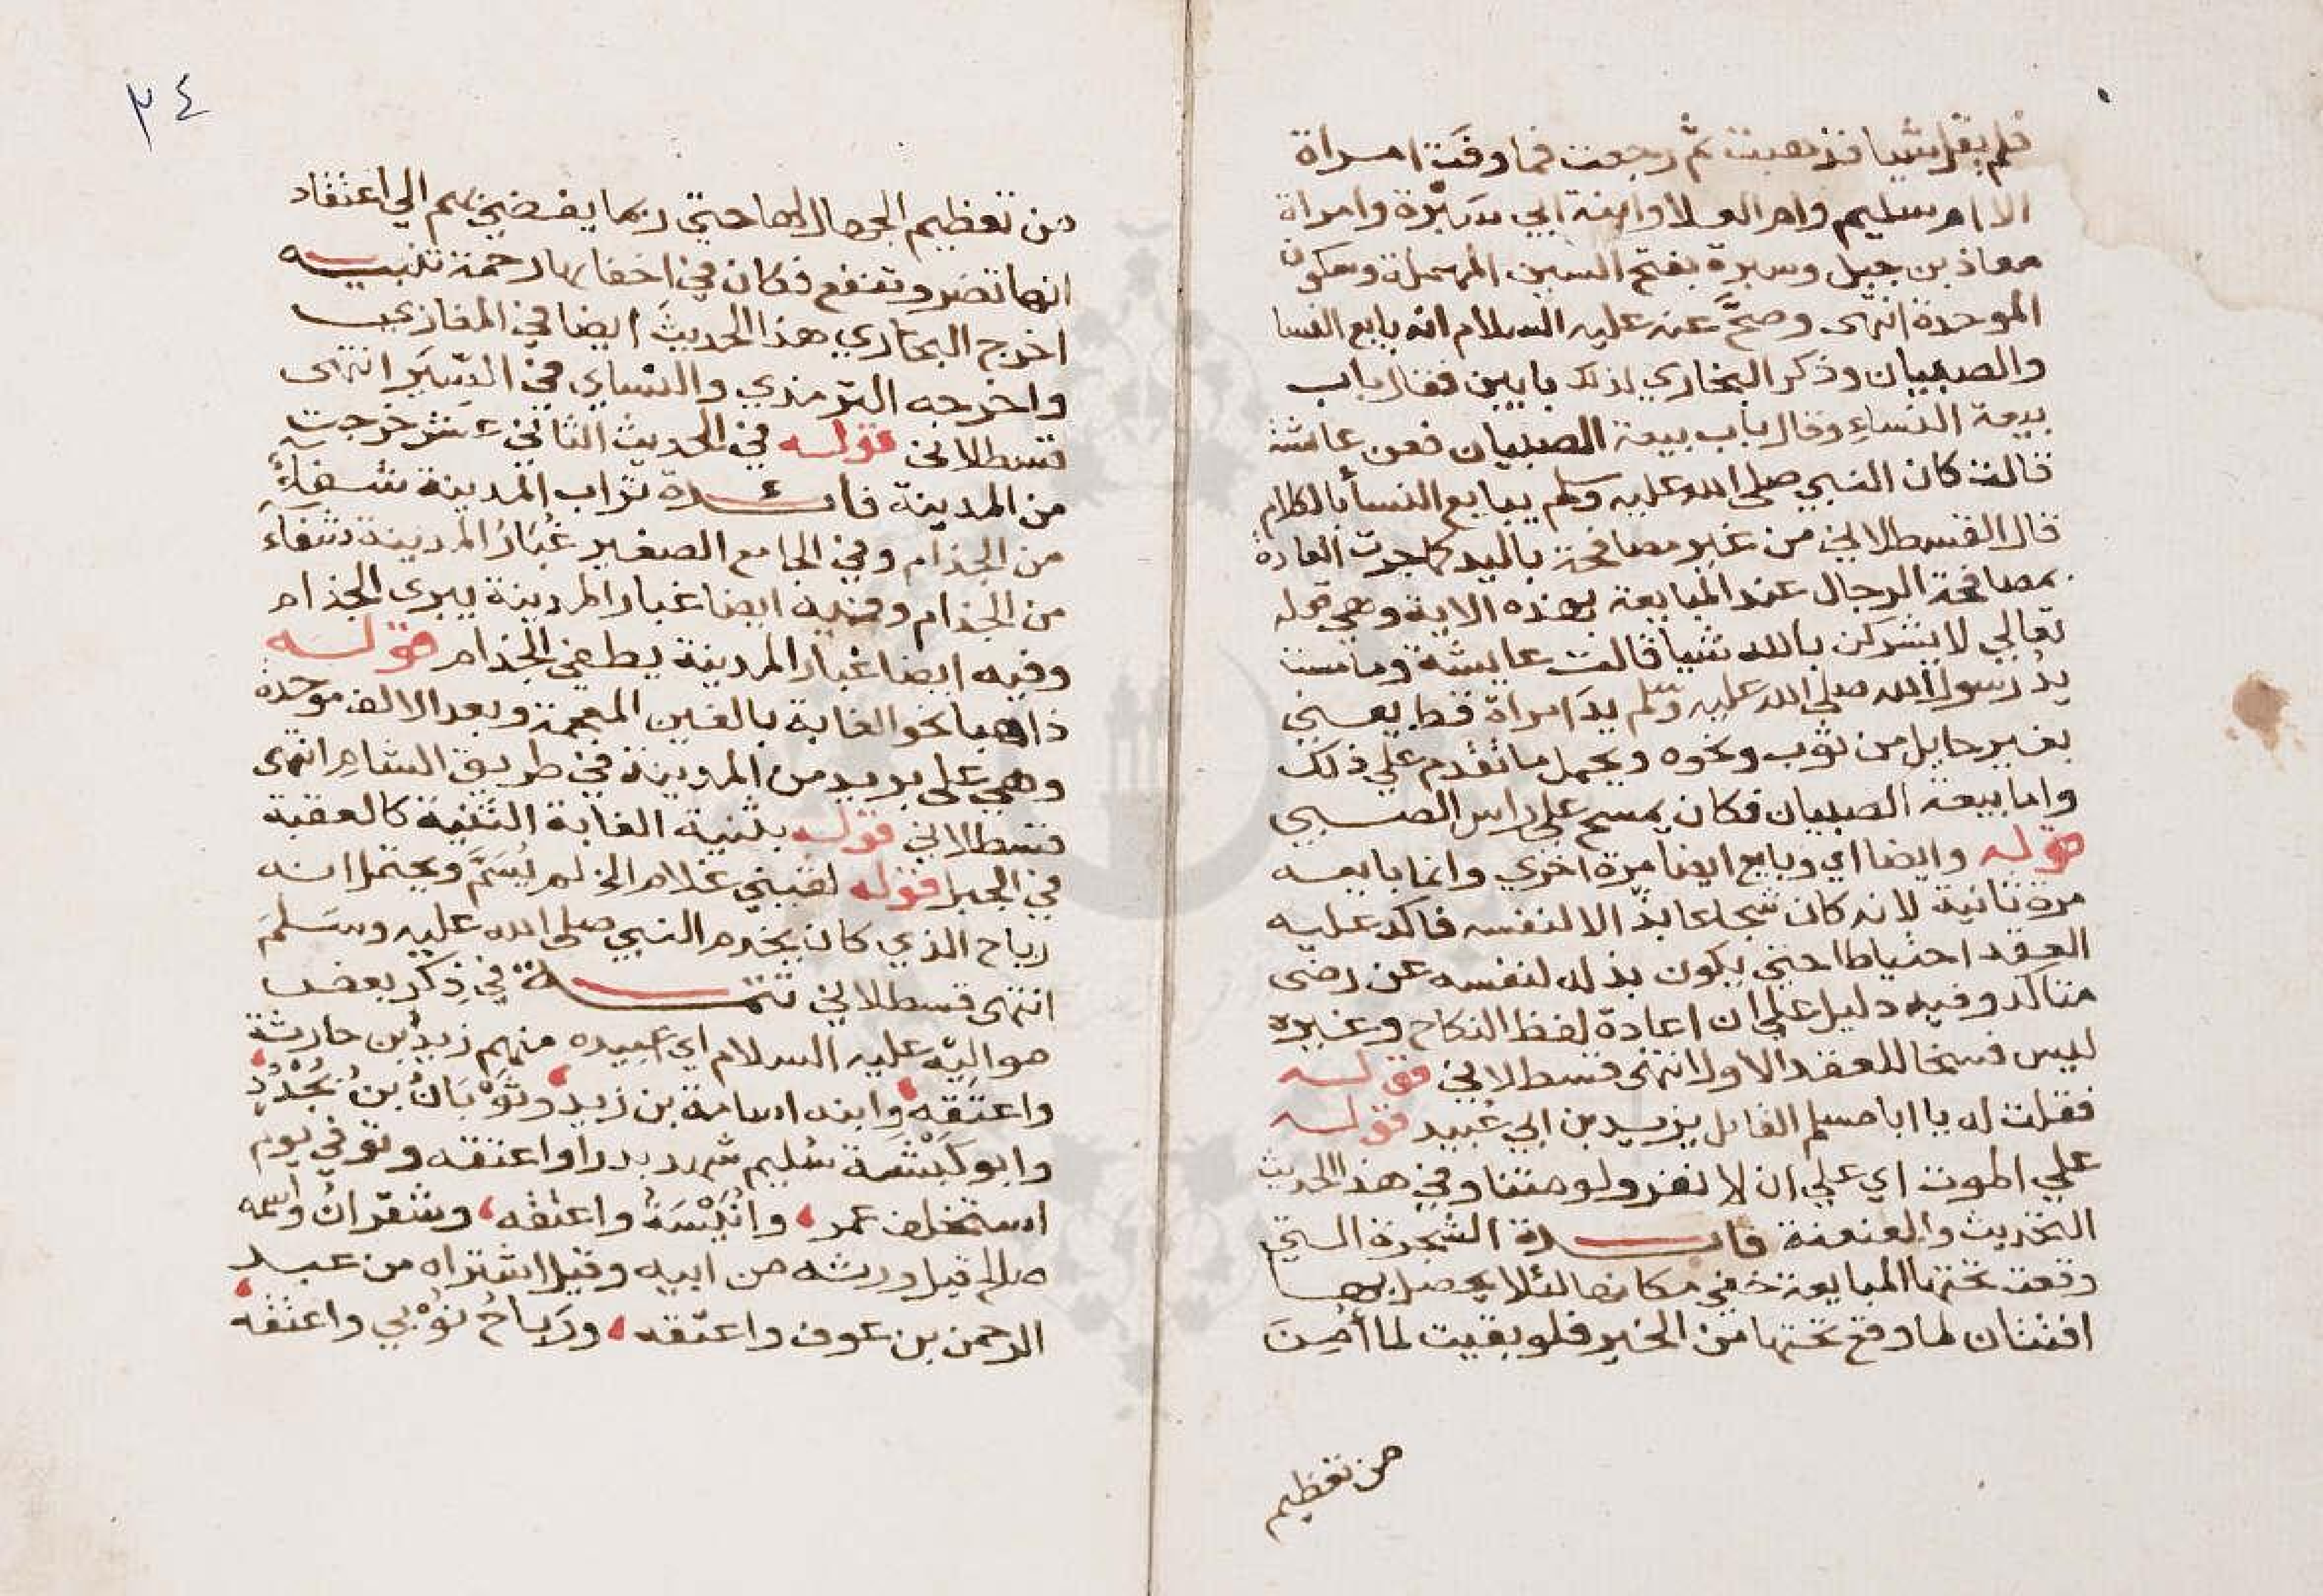 فلم يقل شيا فذهبت ثم رجعت فما وفت امراة
الا ام سليم وام العلا وابنة ابي سبرة وامراة
معاذ بن جبل وسبرة بفتح السين المهملة وسكون
الموحدة انتهى وصح عنه عليه السلام انه بايع النسا
والصبيان وذكر البخاري لذلك بابين فقال باب
بيعة النساء وقال باب بيعة الصبيان فعن عائشة
قالت كان النبي صلى الله عليه وسلم يبايع النسا بالكلام
قال القسطلاني من غير مصافحة باليد كما جرت العادة
بمصافحة الرجال عند المبايعة بهذه الاية وهي قوله
تعالي لا يشركن بالله شيا قالت عايشة وما مست
يد رسول الله صلى الله عليه وسلم يد امراة قط يعني
بغير حايل من ثوب ونحوه ويحمل ما تقدم علي ذلك
واما بيعة الصبيان فكان يمسح علي راس الصبي
قوله وايضا اي وبايع ايضا مرة اخري وانما بايعه
مرة ثانية لانه كان شجاعا بذالا لنفسه فاكد عليه
العقد احتياطا حتي يكون بذله لنفسه عن رضى
متاكد وفيه دليل علي ان اعادة لفظ النكاح وغيره
ليس فسخا للعقد الاول انتهى قسطلاني قوله
فقلت له يا ابا مسلم القايل يزيد بن ابي عبيد قوله
علي الموت اي علي ان لا نفر ولو متنا وفي هذا الحديث
التحديث والعنعنة فائدة الشجرة التي
وقعت تحتها المبايعة خفي مكانها لئلا يحصل بها
افتتان لما وقع تحتها من الخير فلو بقيت لما أمن
من تعظيم
٢٤
من تعظيم الجهال لها حتي ربما يفضي بهم الي اعتقاد
انها تضر وتنفع فكان في اخفايها رحمة تنبيه
اخرج البخاري هذا الحديث ايضا في المغازي
واخرجه الترمذي والنساي في السير انتهى
قسطلاني قوله في الحديث الثاني عشر خرجت
من المدينة فائدة تراب المدينة شفاء
من الجذام وفي الجامع الصغير غبار المدينة شفاء
من الجذام وفيه ايضا غبار المدينة يبرى الجذام
وفيه ايضا غبار المدينة يطفي الجذام قوله
ذاهبا نحو الغابة بالغين المعجمة وبعد الالف موحدة
وهي على بريد من المدينة في طريق الشام انتهى
قسطلاني قوله بثنية الغابة الثنية كالعقبة
في الجبل قوله لقيني غلام الخ لم يسم ويحتمل انه
رباح الذي كان يخدم النبي صلى الله عليه وسلم
انتهى قسطلاني تتمة في ذكر بعض
مواليه عليه السلام اي عبيده منهم زيد بن حارثة
واعتقه وابنه اسامة بن زيد وثوبان بن بجدد
وابو كبشة سليم شهد بدرا واعتقه وتوفي يوم
استخلف عمر وانيسة واعتقه وشقران واسمه
صالح قيل ورثه من ابيه وقيل اشتراه من عبد
الرحمن بن عوف واعتقه ورباح نوبي واعتقه